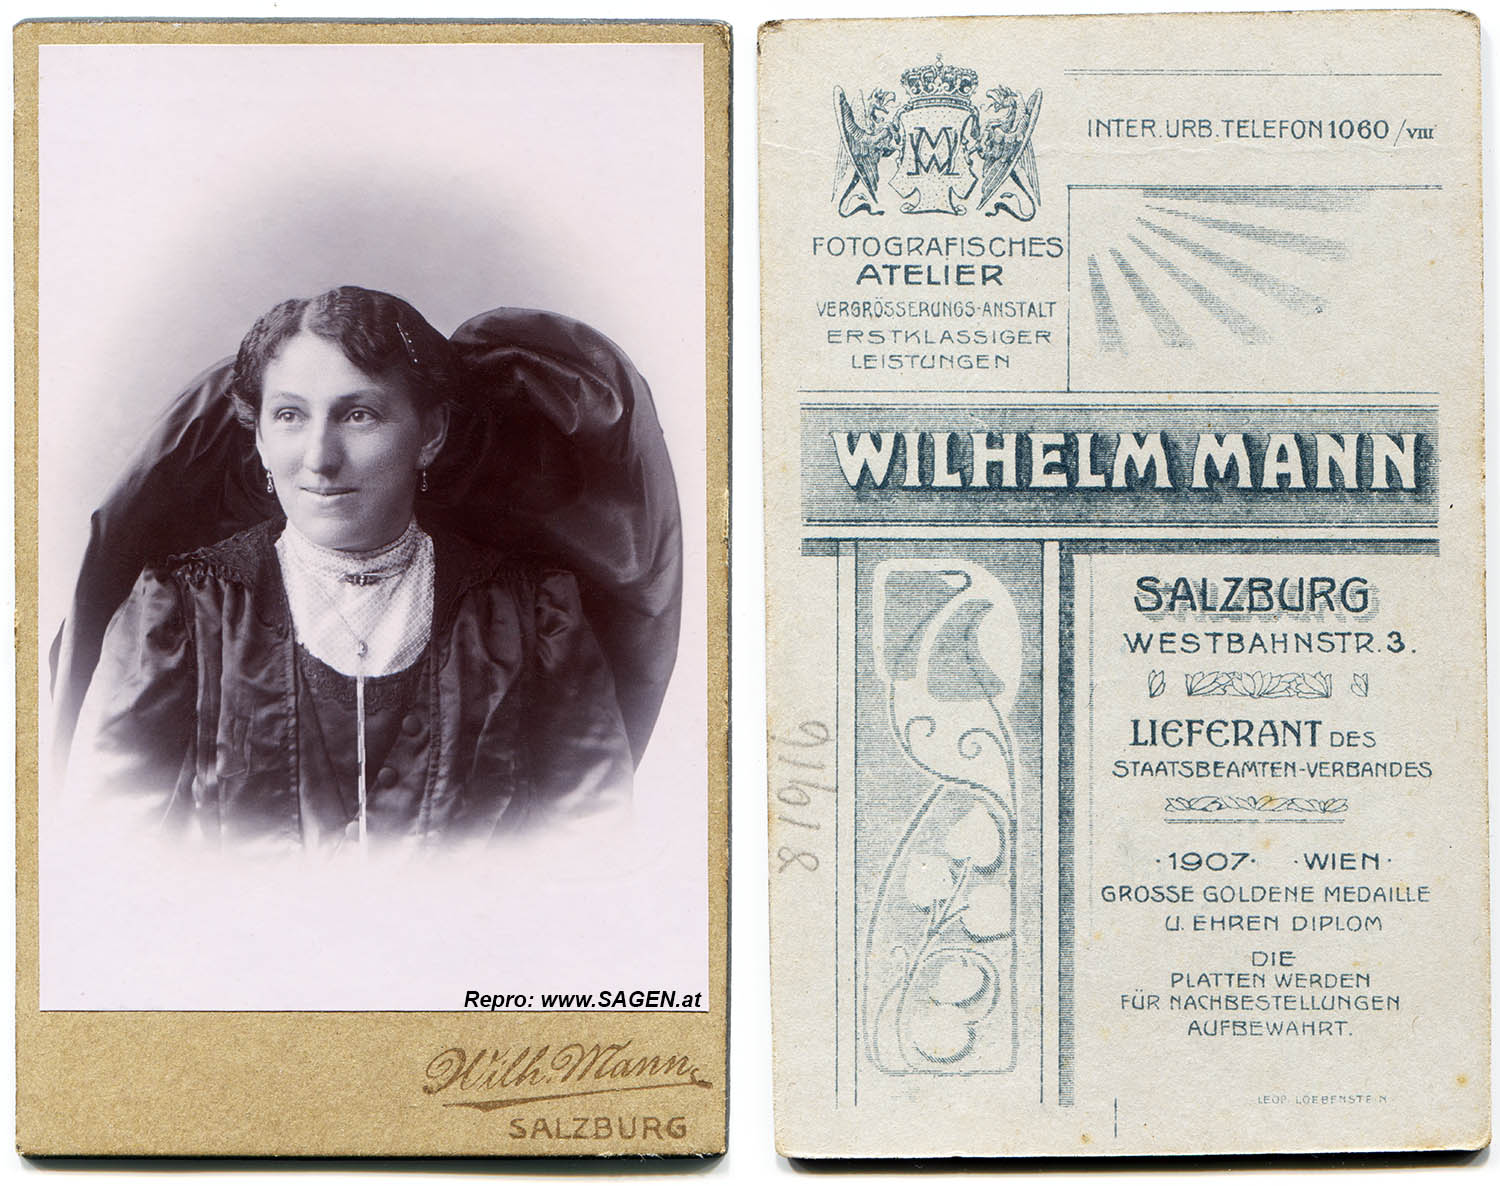 Repro: www.SAGEN.at
Wilh. Mann
SALZBURG
MW
INTER. URB. TELEFON 1060/VIII
FOTOGRAFISCHES
ATELIER
VERGRÖSSERUNGS-ANSTALT
ERSTKLASSIGER
LEISTUNGEN
WILHELM MANN
SALZBURG
WESTBAHNSTR. 3.
LIEFERANT DES
STAATSBEAMTEN-VERBANDES
·1907· ·WIEN·
GROSSE GOLDENE MEDAILLE
U. EHREN DIPLOM
DIE
PLATTEN WERDEN
FÜR NACHBESTELLUNGEN
AUFBEWAHRT.
LEOP. LOEBENSTEIN
81916